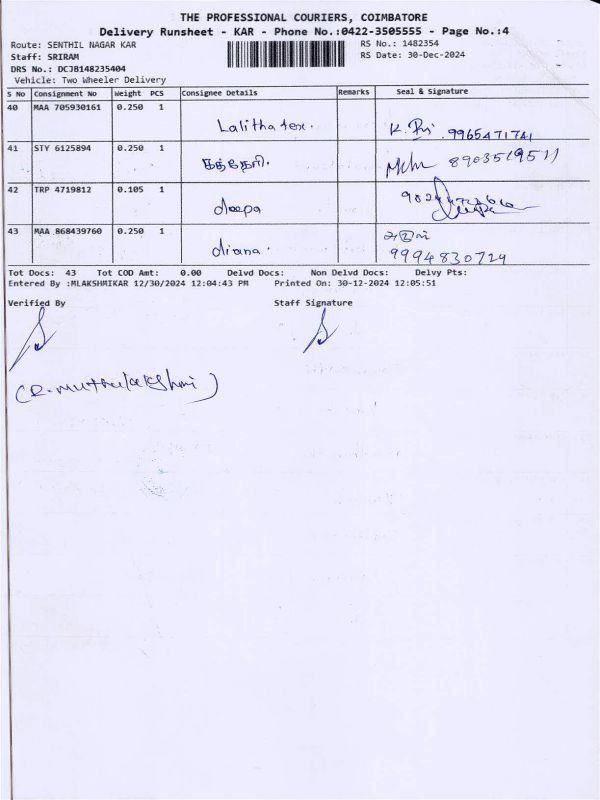 THE PROFESSIONAL COURIERS, COIMBATORE
Delivery Runsheet - KAR - Phone No.:0422-3505555 - Page No.:4
Route: SENTHIL NAGAR KAR
RS No.: 1482354
Staff: SRIRAM
RS Date: 30-Dec-2024
DRS No.: DCJB148235404
Vehicle: Two Wheeler Delivery
S No Consignment No Weight PCS Consignee Details Remarks Seal & Signature
40 MAA 705930161 0.250 1
Lalitha tex. K. 9965471741
41 STY 6125894 0.250 1
8903519511
42 TRP 4719812 0.105 1
deepa
43 MAA 868439760 0.250 1
diana. 9994830729
Tot Docs: 43 Tot COD Amt: 0.00 Delvd Docs: Non Delvd Docs: Delvy Pts:
Entered By :MLAKSHMIKAR 12/30/2024 12:04:43 PM Printed On: 30-12-2024 12:05:51
Verified By Staff Signature
(R. Muthulakshmi)